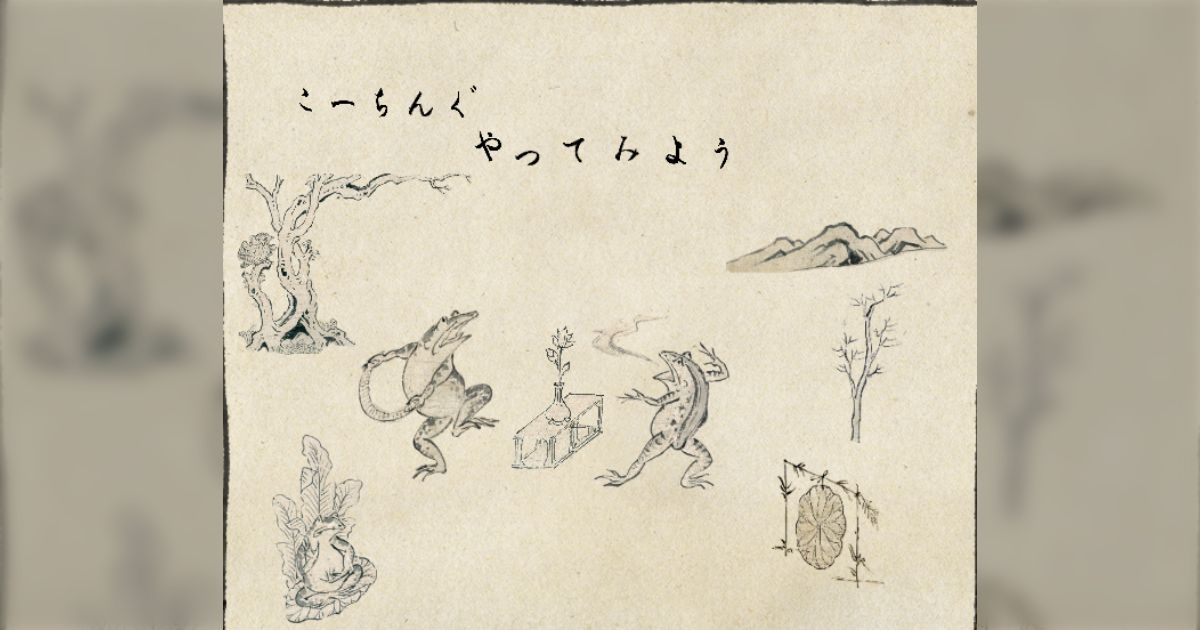 こーちんぐ
やってみよう